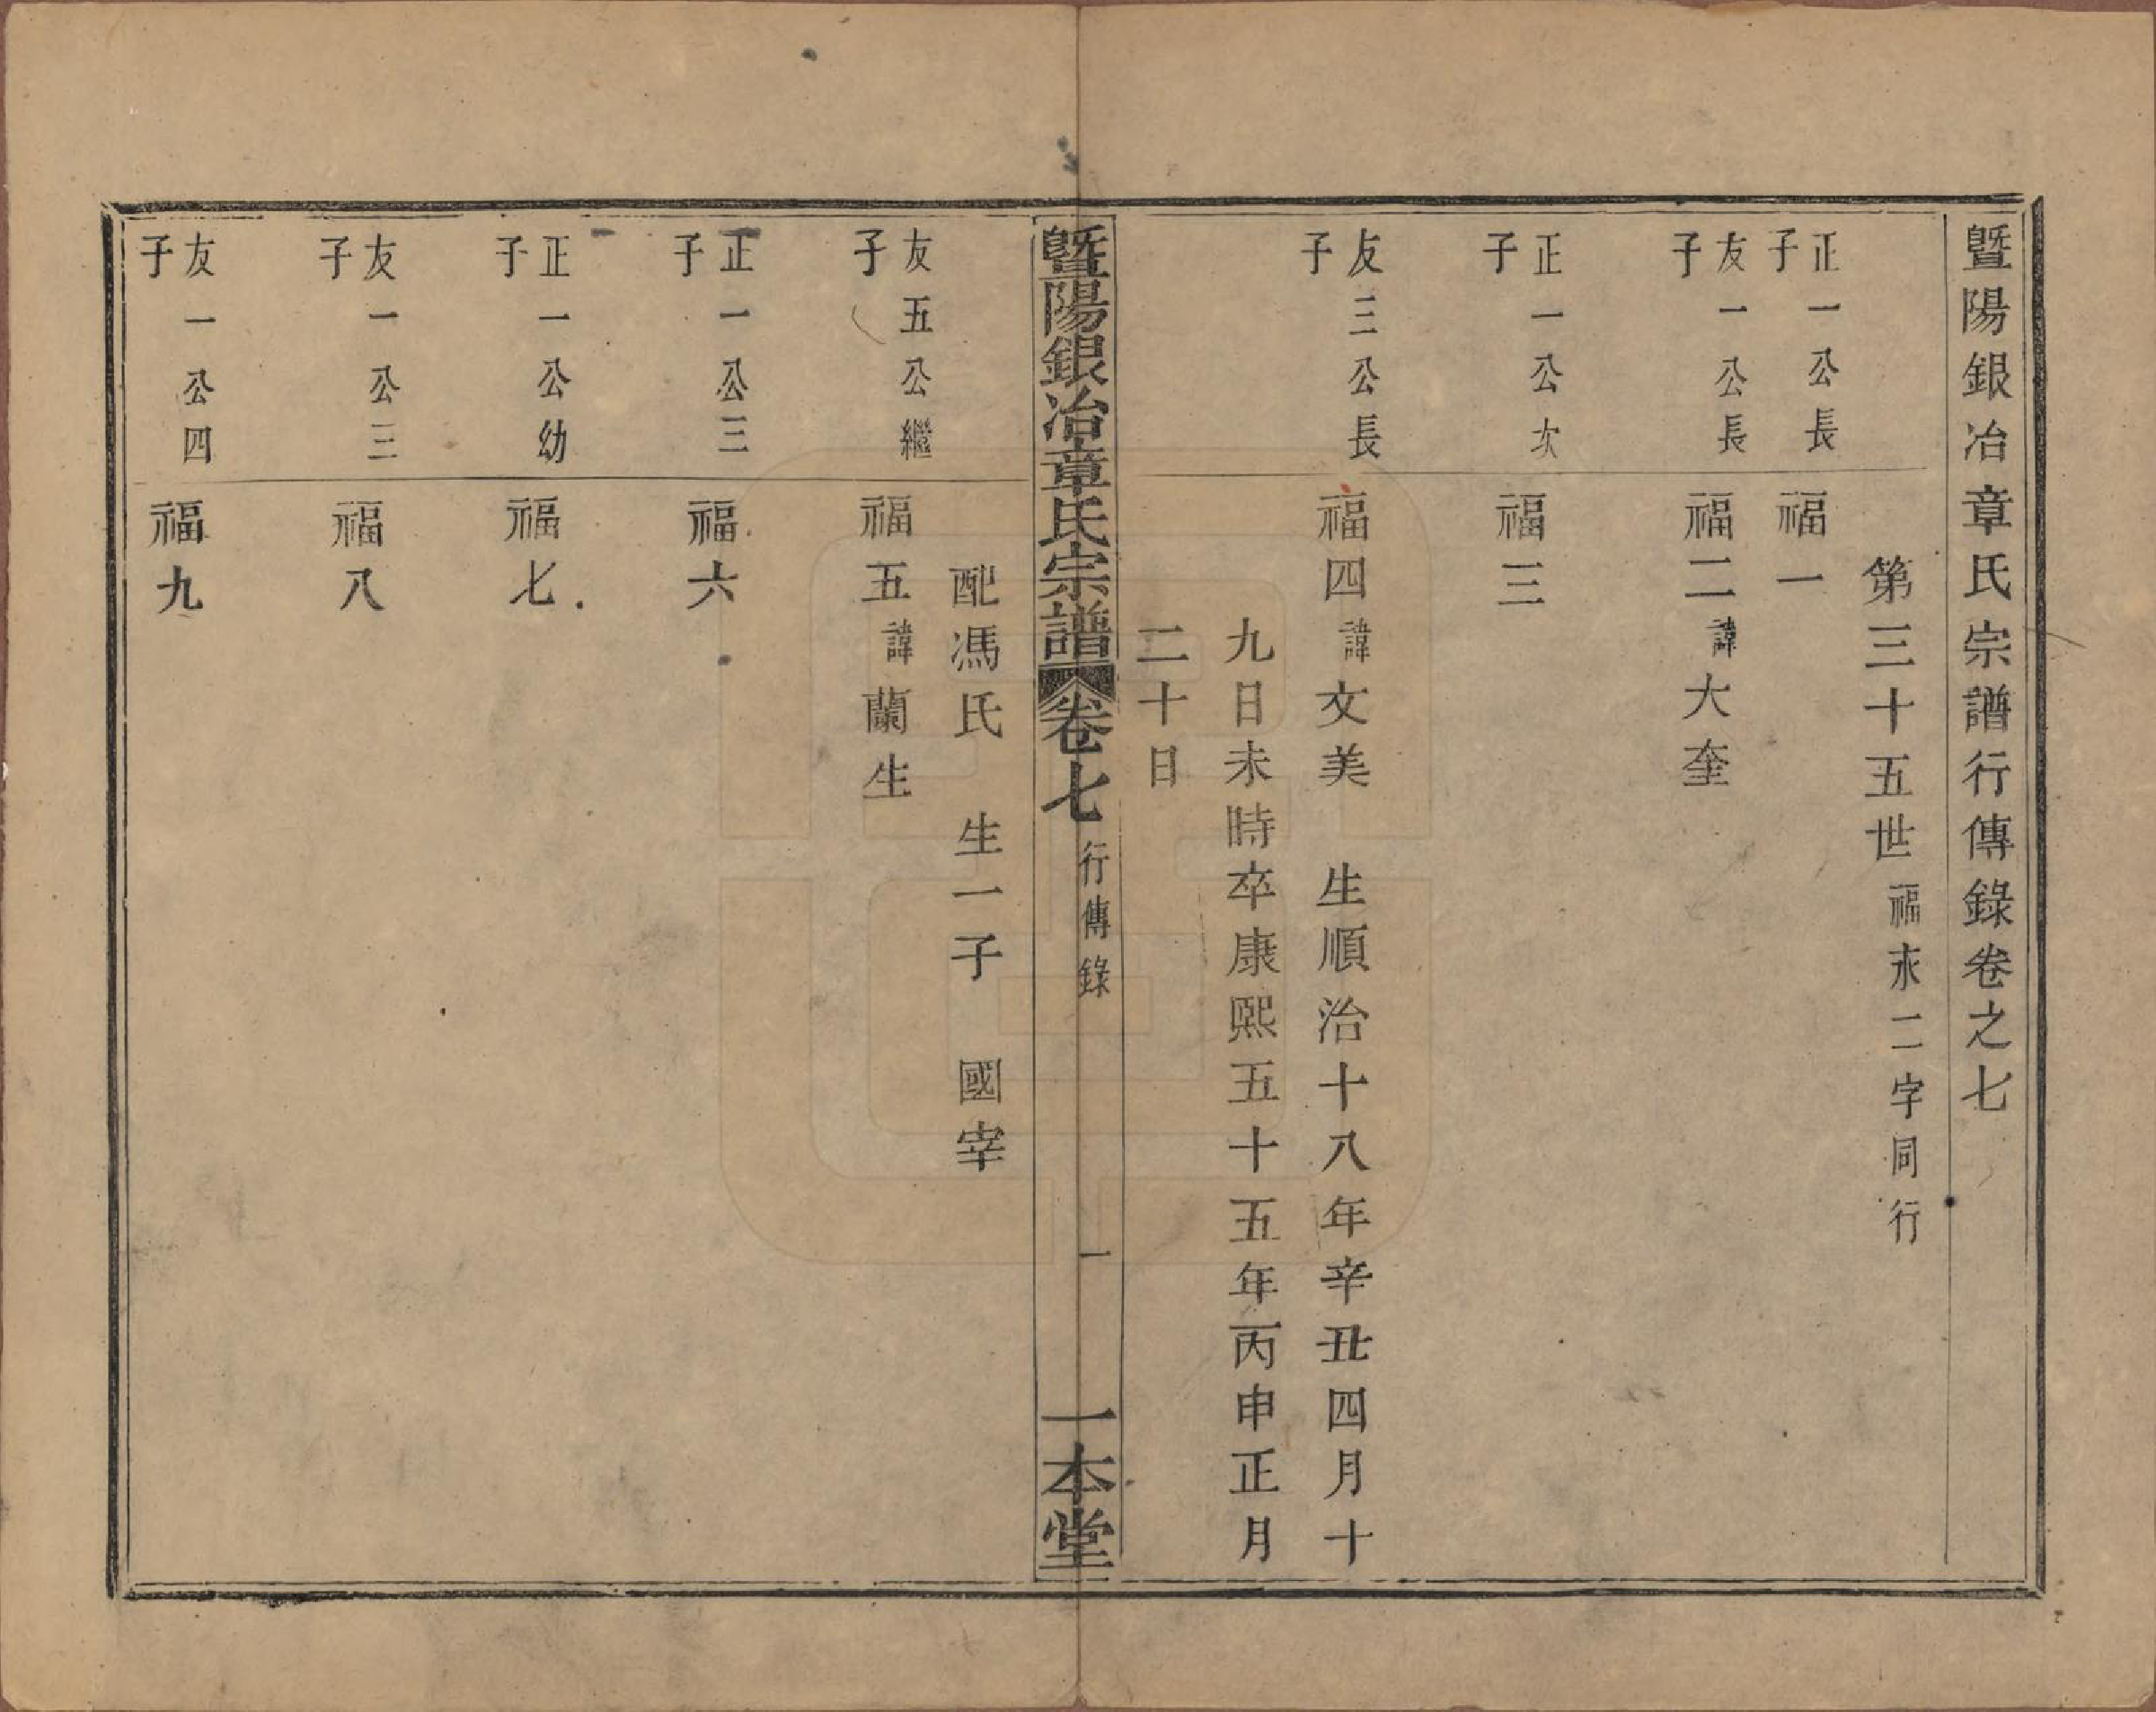 暨陽銀冶章氏宗譜行傳錄卷之七
第三十五世福永二字同行
正一公長子
福一
友一公長子
福二諱大奎
正一公次子
福三
友三公長子
福四諱文美　生順治十八年辛丑四月十
九日未時卒康熙五十五年丙申正月
二十日
暨陽銀冶章氏宗譜　卷七　行傳錄　一　一本堂
配馮氏　生一子　國宰
友五公繼子
福五諱蘭生
正一公三子
福六
正一公幼子
福七
友一公三子
福八
友一公四子
福九